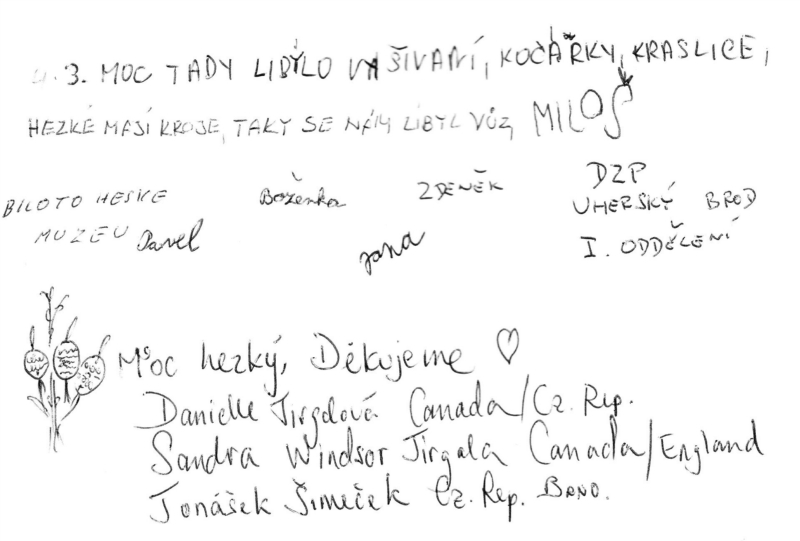 4.3. MOC TADY LIBÝLO VYŠIVANÍ, KOČÁRKY, KRASLICE,
HEZKÉ MAJÍ KROJE, TAKY SE NÁM LÍBYL VŮZ, MILOŠ
BILOTO HESKE
MUZEU Pavel
Boženka
ZDENĚK
Jana
DZP
UHERSKÝ BROD
I. ODDĚLENÍ
Moc hezký, Děkujeme ♡
Danielle Jirgalová Canada/Cz. Rep.
Sandra Windsor Jirgala Canada/England
Tonášek Šimeček Cz. Rep. Brno.